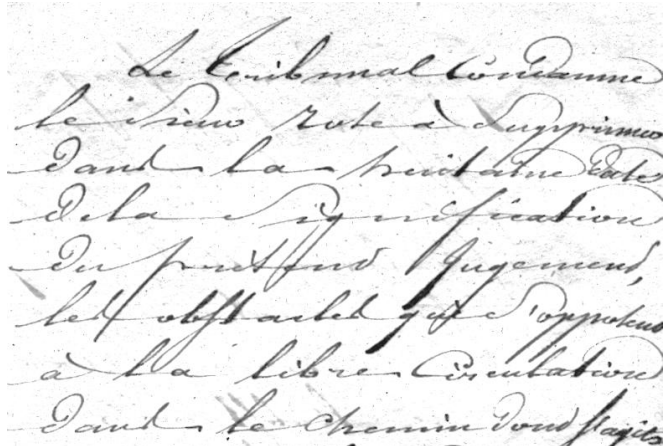 Le Tribunal Condamne
le Sieur Rote à Supprimer
dans la huitaine date
de la Signification
du présent Jugement,
les obstacles qui S'opposent
à la libre Circulation
dans le chemin dont S'agit